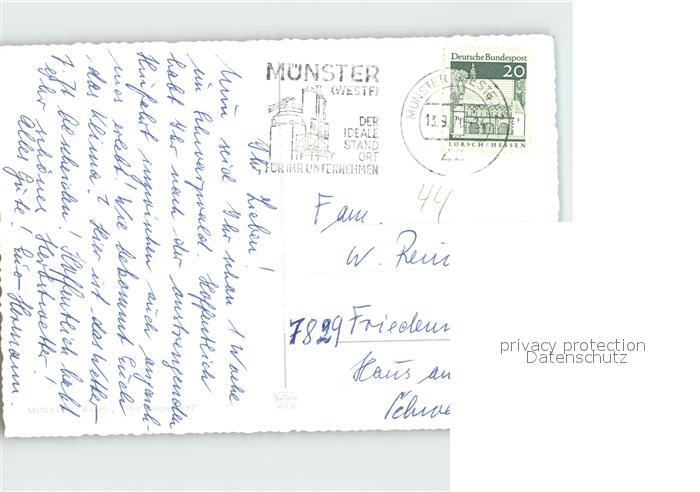 MÜNSTER
(WESTF)
DER
IDEALE
STAND
ORT
FÜR IHR UNTERNEHMEN
Deutsche Bundespost
20
LORSCH / HESSEN
MÜNSTER (WESTF)
13.9.71
44
Ihr Lieben!
Nun seid Ihr schon 1 Woche
im Schwarzwald. Hoffentlich
habt Ihr nach der anstrengenden
Hinfahrt inzwischen auch angeneh-
mes erlebt! Wie bekommt Euch
das Klima? Hier ist das Wetter
z. Zt. bescheiden! Hoffentlich habt
Ihr schönes Herbstwetter!
Alles Gute! Euer Hermann
Fam.
W. Rein
7829 Frieden
Haus an
Schw
MÜNSTER
privacy protection
Datenschutz